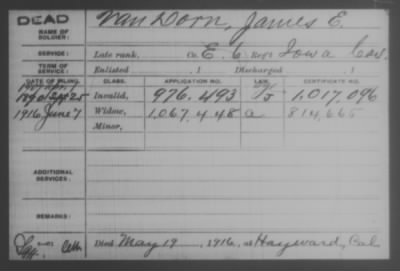 DEAD
NAME OF SOLDIER: Van Dorn, James E.
SERVICE: Late rank, Co. E, 6 Reg't Iowa Cav.
TERM OF SERVICE: Enlisted , 1 Discharged , 1
DATE OF FILING. CLASS. APPLICATION NO. LAW. CERTIFICATE NO.
Invalid, 976.493 1,017,096
1916 June 7 Widow, 1,067.448 a 814,665
Minor,
ADDITIONAL SERVICES:
REMARKS:
Died May 19, 1916, at Hayward, Cal